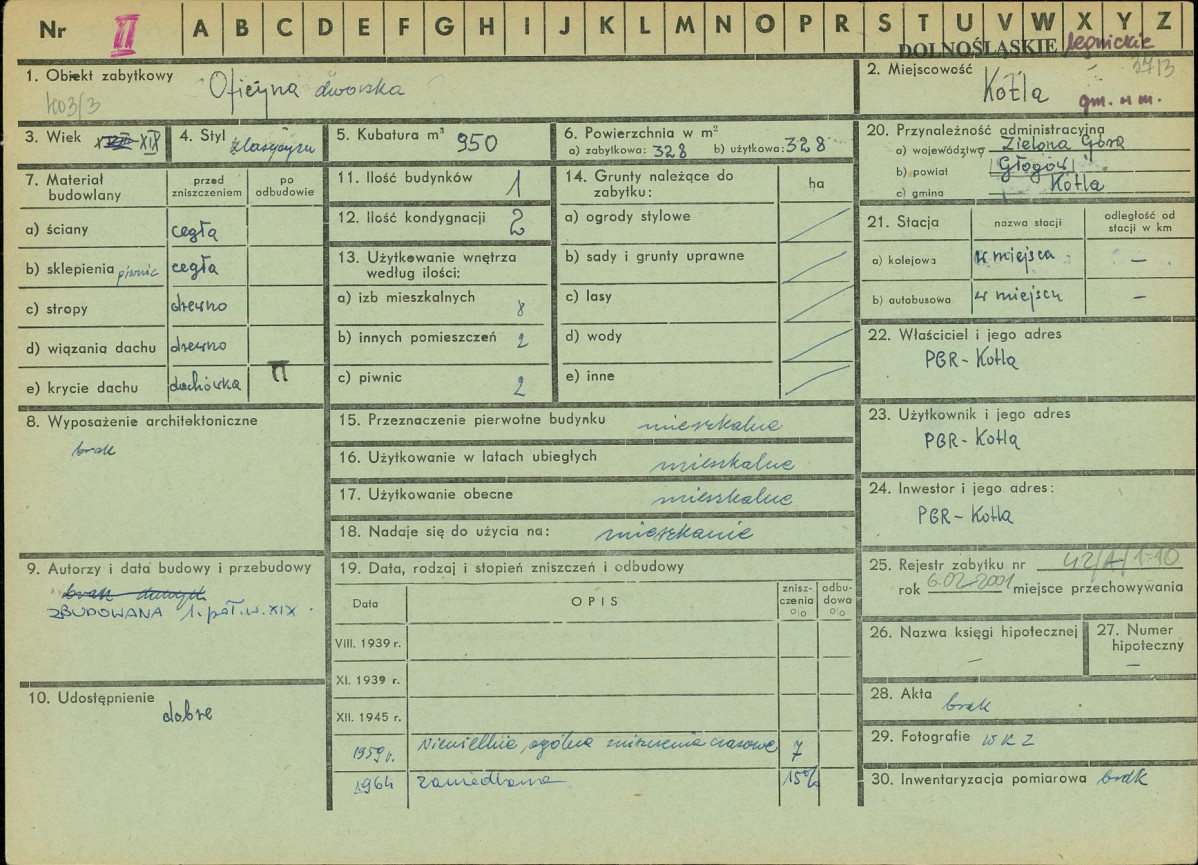 Nr II A B C D E F G H I J K L M N O P R S T U V W X Y Z
DOLNOŚLĄSKIE legnickie
1. Obiekt zabytkowy Oficyna dworska
403/3
2. Miejscowość Kotla
3713
gm. w m.
3. Wiek XIX
4. Styl klasycyzm
5. Kubatura m³ 950
6. Powierzchnia w m²
a) zabytkowa: 328 b) użytkowa: 328
20. Przynależność administracyjna
a) województwo Zielona Góra
b) powiat Głogów
c) gmina Kotla
7. Materiał budowlany
przed zniszczeniem
po odbudowie
a) ściany cegła
b) sklepienia piwnic cegła
c) stropy drewno
d) wiązania dachu drewno
e) krycie dachu dachówka
II
11. Ilość budynków 1
12. Ilość kondygnacji 2
13. Użytkowanie wnętrza według ilości:
a) izb mieszkalnych 8
b) innych pomieszczeń 2
c) piwnic 2
14. Grunty należące do zabytku:
ha
a) ogrody stylowe
b) sady i grunty uprawne
c) lasy
d) wody
e) inne
21. Stacja
nazwa stacji
odległość od stacji w km
a) kolejowa w miejscu –
b) autobusowa w miejscu –
22. Właściciel i jego adres
PGR - Kotla
8. Wyposażenie architektoniczne
brak
15. Przeznaczenie pierwotne budynku mieszkalne
16. Użytkowanie w latach ubiegłych mieszkalne
17. Użytkowanie obecne mieszkalne
18. Nadaje się do użycia na: mieszkanie
23. Użytkownik i jego adres
PGR - Kotla
24. Inwestor i jego adres:
PGR - Kotla
9. Autorzy i data budowy i przebudowy
brak danych
ZBUDOWANA 1. poł. w. XIX.
19. Data, rodzaj i stopień zniszczeń i odbudowy
Data
OPIS
znisz-
czenia
%
odbu-
dowa
%
VIII. 1939 r.
XI. 1939 r.
XII. 1945 r.
1959 r. Niewielkie, ogólne zniszczenia czasowe 7
1964 zaniedbana 15%
25. Rejestr zabytku nr 42/A/1-10
rok 6.02.2001 miejsce przechowywania
26. Nazwa księgi hipotecznej
–
27. Numer hipoteczny
–
10. Udostępnienie dobre
28. Akta brak
29. Fotografie WKZ
30. Inwentaryzacja pomiarowa brak